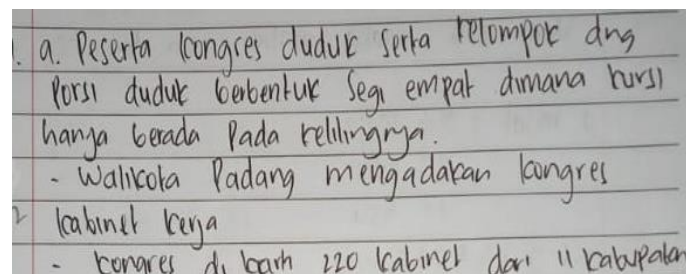 a. Peserta kongres duduk serta kelompok dng
Porsi duduk berbentuk segi empat dimana kursi
hanya berada Pada kelilingnya.
- Walikota Padang mengadakan kongres
2 kabinet kerja
- kongres di 220 kabinet dari 11 kabupaten